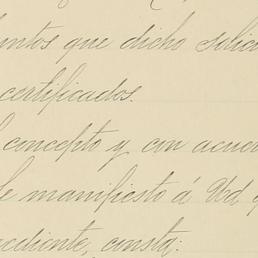 untos que dicho solici
certificados.
concepto y con acuer
de manifiesto á Vd q
pediente, consta: